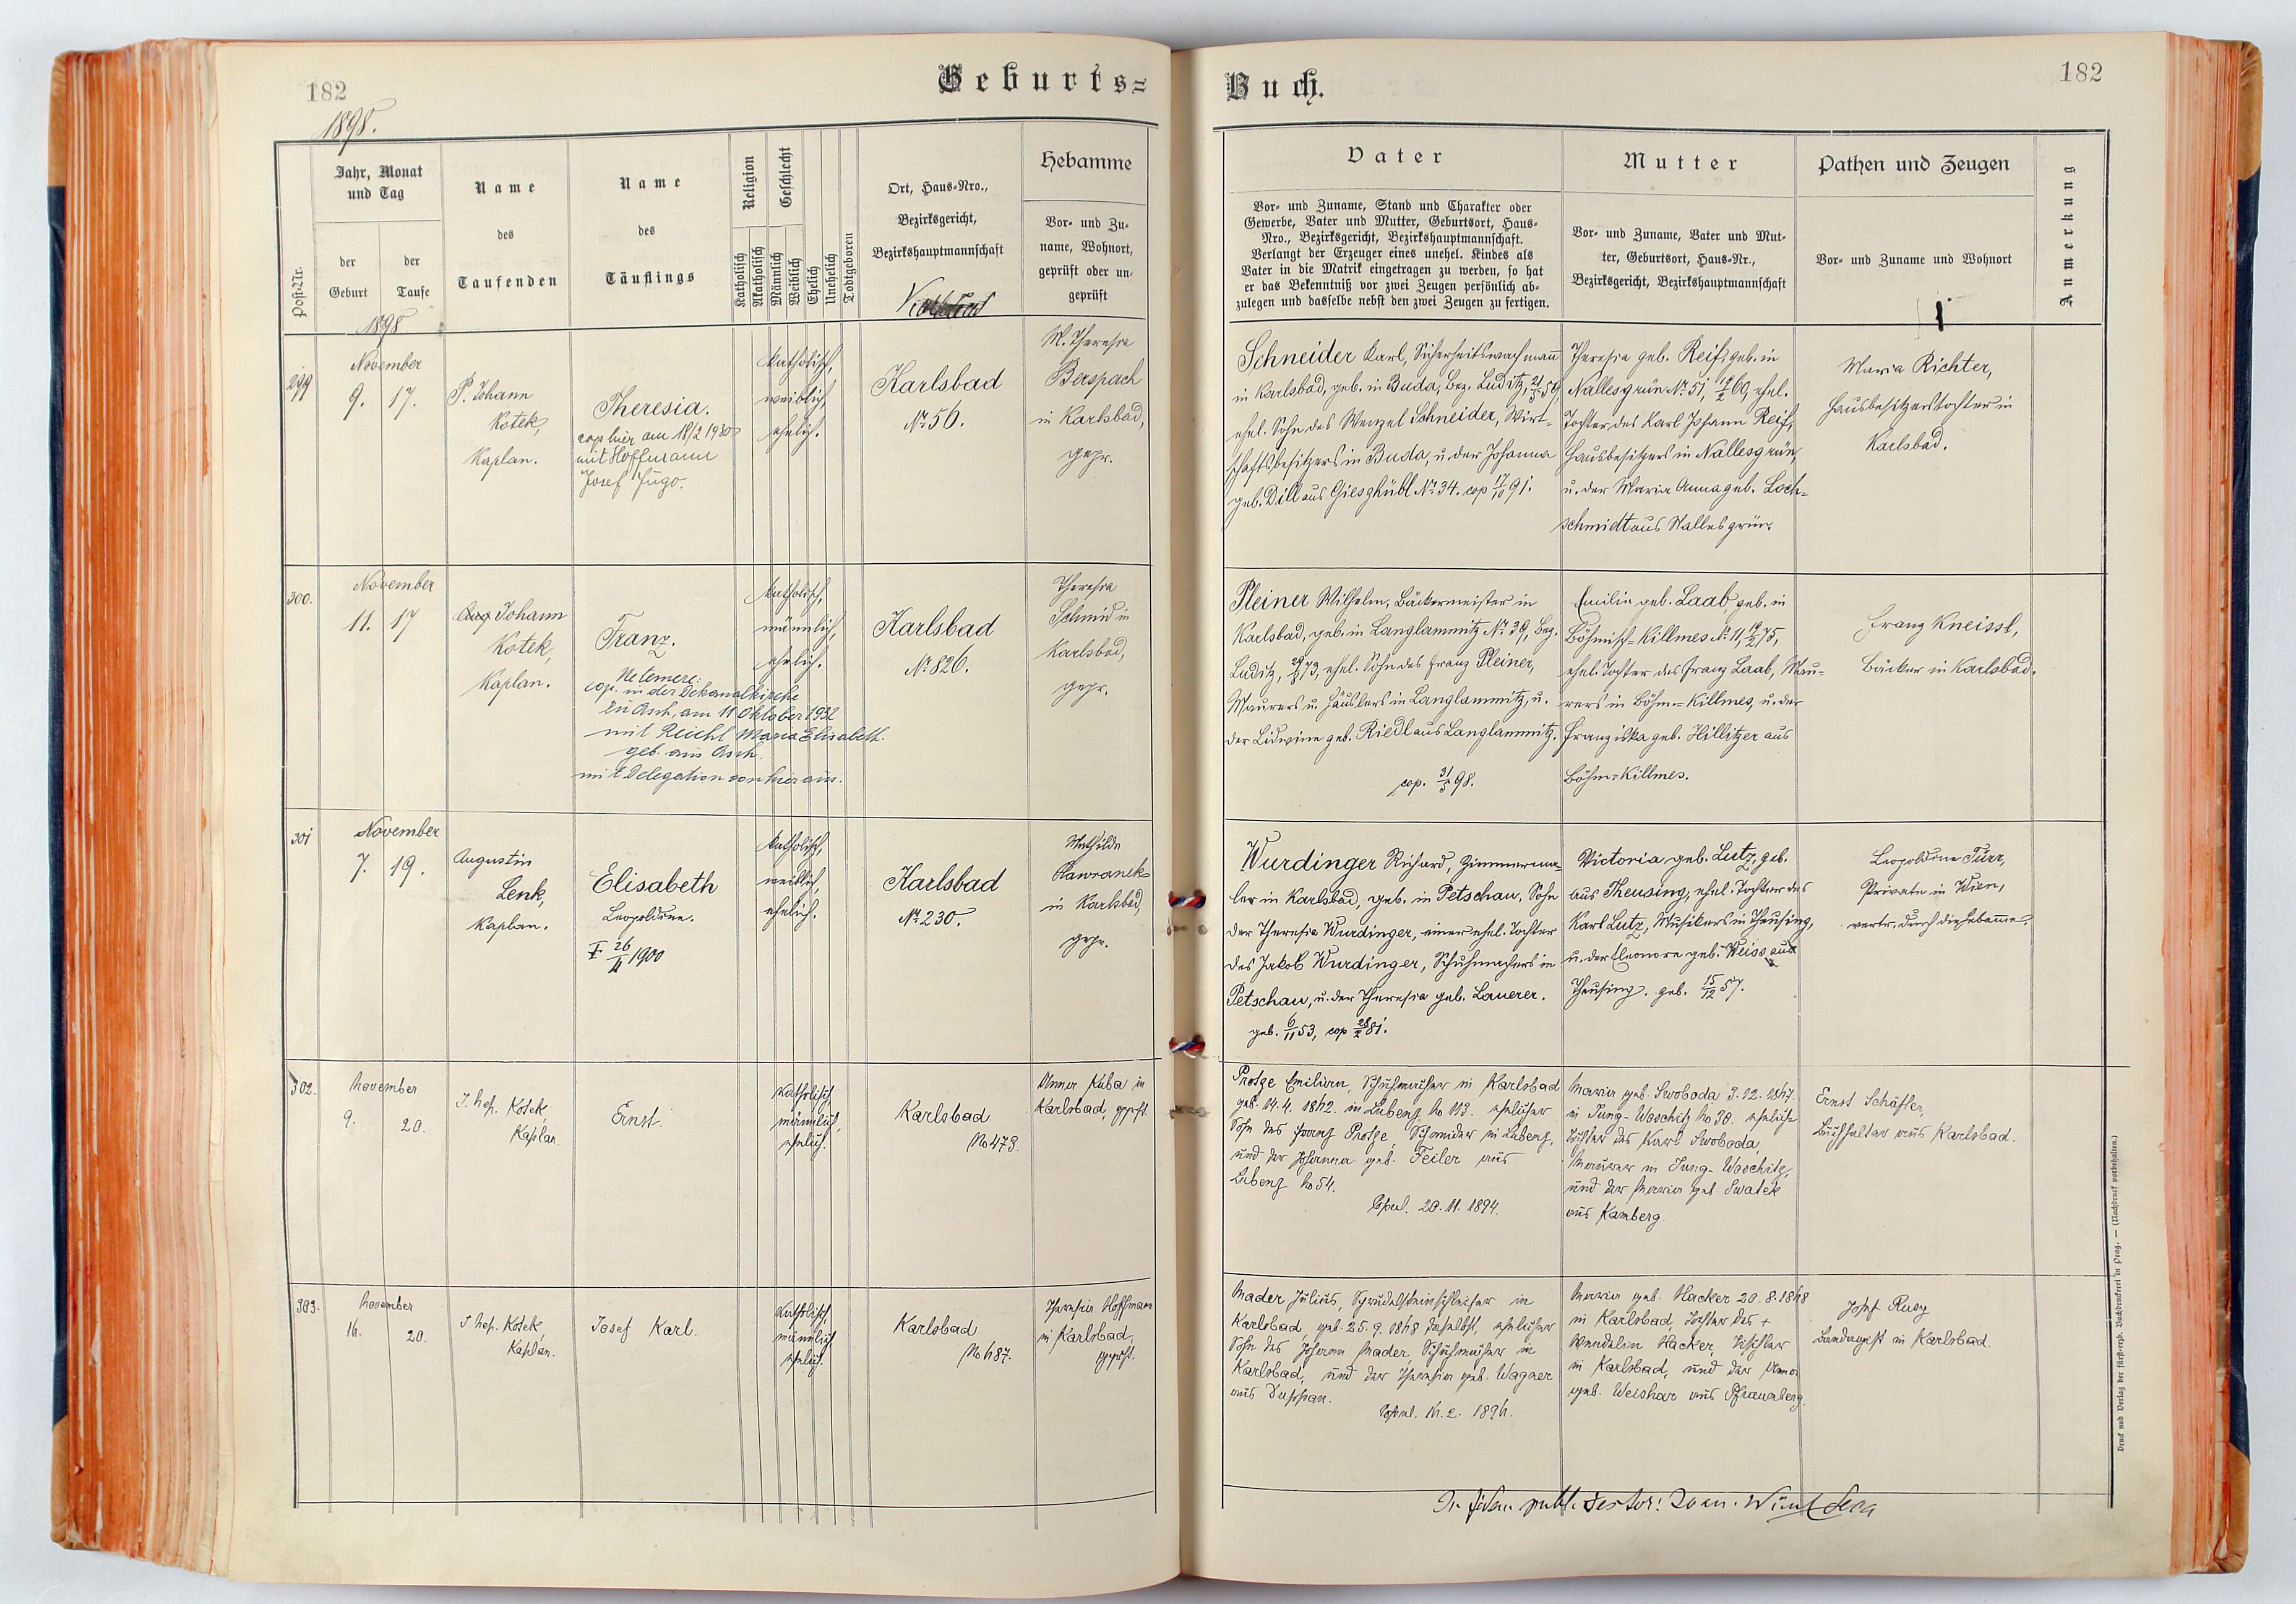 182
Geburts=
1898.
Post-Nr.
Jahr, Monat
und Tag
der
Geburt
der
Taufe
1898
Name
des
Taufenden
Name
des
Täuflings
Religion
Geschlecht
Katholisch
Akatholisch
Männlich
Weiblich
Ehelich
Unehelich
Todtgeboren
Ort, Haus-Nro.,
Bezirksgericht,
Bezirkshauptmannschaft
Hebamme
Vor- und Zu-
name, Wohnort,
geprüft oder un-
geprüft
299
November
9. 17.
P. Johann
Kotek,
Kaplan.
Theresia.
cop hier am 18/2 1930
mit Hoffmann
Josef Hugo.
katholisch,
weiblich,
ehelich.
Karlsbad
No 56.
M. Theresia
Berspach
in Karlsbad,
gepr.
300.
November
11. 17
Johann
Kotek,
Kaplan.
Franz.
Netemere:
cop. in der Dekanalkirche
zu Asch, am 11 Oktober 1932
mit Reichl Maria Elisabeth.
geb. aus Asch.
mit Delegation von hier aus.
katholisch,
männlich,
ehelich.
Karlsbad
No 826.
Theresia
Schmid in
Karlsbad,
gepr.
301
November
7. 19.
Augustin
Lenk,
Kaplan.
Elisabeth
Leopoldine.
26/4 1900
katholisch,
weiblich,
ehelich.
Karlsbad
No 230.
Mathilde
Hawranek
in Karlsbad,
gepr.
302.
November
9. 20.
J. Nep. Kotek,
Kaplan.
Ernst.
Katholisch
männlich,
ehelich.
Karlsbad
No 479.
Anna Kuba in
Karlsbad, geprft.
303.
November
14. 20.
J. Nep. Kotek,
Kaplan.
Josef Karl.
Katholisch,
männlich
ehelich.
Karlsbad
No 487.
Theresia Hoffmann
in Karlsbad,
geprft.
Buch.
182
Vater
Vor- und Zuname, Stand und Charakter oder
Gewerbe, Vater und Mutter, Geburtsort, Haus-
Nro., Bezirksgericht, Bezirkshauptmannschaft.
Verlangt der Erzeuger eines unehel. Kindes als
Vater in die Matrik eingetragen zu werden, so hat
er das Bekenntniß vor zwei Zeugen persönlich ab-
zulegen und dasselbe nebst den zwei Zeugen zu fertigen.
Mutter
Vor- und Zuname, Vater und Mut-
ter, Geburtsort, Haus-Nr.,
Bezirksgericht, Bezirkshauptmannschaft
Pathen und Zeugen
Vor- und Zuname und Wohnort
Anmerkung
Schneider Karl, Sicherheitswachmann
in Karlsbad, geb. in Buda, Bez. Luditz, 21/5 59,
ehel. Sohn des Wenzel Schneider, Wirt-
schaftsbesitzers in Buda, u. der Johanna
geb. Dill aus Gieshübl No 34. cop 17/10 91.
Theresia geb. Reif, geb. in
Nallesgrün No 51, 19/2 60, ehel.
Tochter des Karl Johann Reif,
Hausbesitzers in Nallesgrün,
u. der Maria Anna geb. Loch-
schmidt aus Nallesgrün.
Maria Richter,
Hausbesitzerstochter in
Karlsbad.
Pleiner Wilhelm, Bäckermeister in
Karlsbad, geb. in Langlammitz No 39, Bez.
Luditz, 73, ehel. Sohn des Franz Pleiner,
Maurers u. Häuslers in Langlammitz, u.
der Lidwine geb. Riedl aus Langlammitz.
cop. 31/5 98.
Emilie geb. Laab, geb. in
Böhmisch-Killmes No 11, 19/2 75,
ehel. Tochter des Franz Laab, Mau-
rers in Böhm.-Killmes, u. der
Franziska geb. Hillitzer aus
Böhm-Killmes.
Franz Kneissl,
Bäcker in Karlsbad.
Wurdinger Richard, Zimmerma-
ler in Karlsbad, geb. in Petschau, Sohn
der Theresia Wurdinger, einer ehel. Tochter
des Jakob Wurdinger, Schuhmachers in
Petschau, u. der Theresia geb. Lauerer.
geb. 6/11 53, cop 28/2 81.
Victoria geb. Lutz, geb.
aus Theusing, ehel. Tochter des
Karl Lutz, Musikers in Theusing,
u. der Eleonore geb. Weiss aus
Theusing. geb. 15/12 57.
Leopoldine Türr,
Private in Wien,
vertr. durch die Hebamme.
Protze Emilian, Schuhmacher in Karlsbad
geb. 14. 4. 1842. in Lubenz No 113. ehelicher
Sohn des Franz Protze, Schneider in Lubenz,
und der Johanna geb. Feiler aus
Lubenz No 54.
Copul. 20. 11. 1894.
Maria geb. Swoboda 3. 12. 1847.
in Jung-Woschitz No 38. eheliche
Tochter des Karl Swoboda,
Maurer in Jung-Woschitz,
und der Maria geb. Swatek
aus Kamberg.
Ernst Schäfler,
Buchhalter aus Karlsbad.
Mader Julius, Sprudelsteinschleifer in
Karlsbad, geb. 25. 9. 1848 daselbst, ehelicher
Sohn des Johann Mader Schuhmacher in
Karlsbad, und der Theresia geb. Wagner
aus Duppau.
Copul. 14. 2. 1894.
Maria geb. Hacker 20. 8. 1848
in Karlsbad, Tochter des +
Wendelin Hacker, Tischler
in Karlsbad, und der Anna
geb. Weishar aus Pfraumberg.
Josef Rusy
Bandagist in Karlsbad.
Druck und Verlag der fürst-erzb. Buchdruckerei in Prag. — (Nachdruck vorbehalten.)